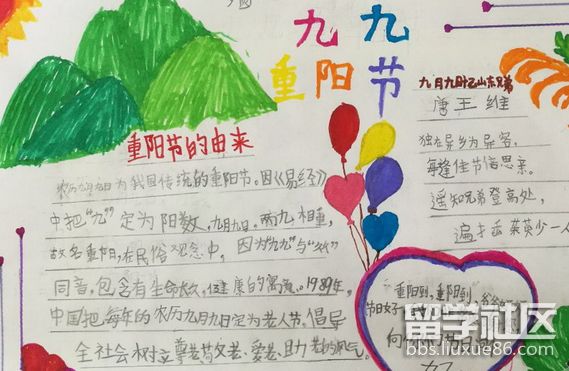 九 九
重 阳 节
重阳节的由来
农历九月九日为我国传统的重阳节。因《易经》
中把“九”定为阳数，九月九日，两九相重，
故名重阳，在民俗观念中，因为“九九”与“久久”
同音，包含有生命长久，健康的寓意。1989年，
中国把每年的农历九月九日定为老人节。倡导
全社会树立尊老敬老、爱老、助老的风气。
九月九日忆山东兄弟
唐 王 维
独在异乡为异客，
每逢佳节倍思亲。
遥知兄弟登高处，
遍插茱萸少一人
“重阳到，重阳到，
节日好
留学社区
bbs.liuxue86.com